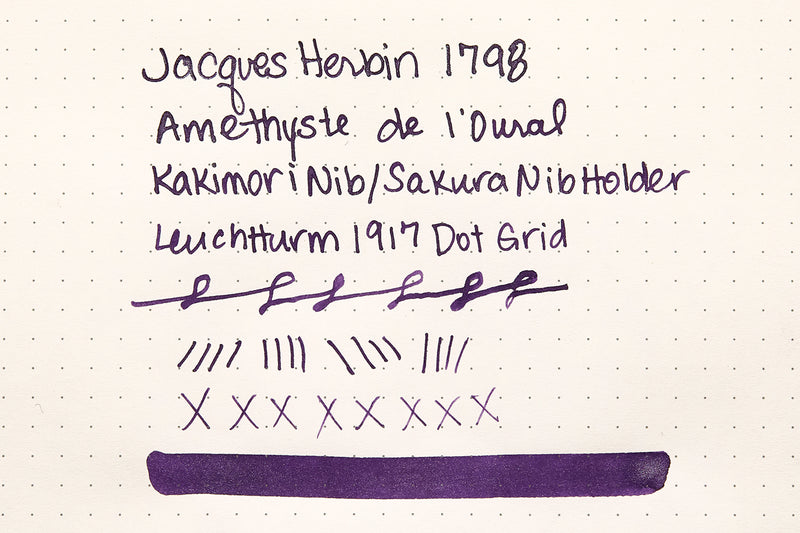 Jacques Herbin 1798
Amethyste de l'Oural
Kakimori Nib/Sakura Nib Holder
Leuchtturm 1917 Dot Grid
X X X X X X X X